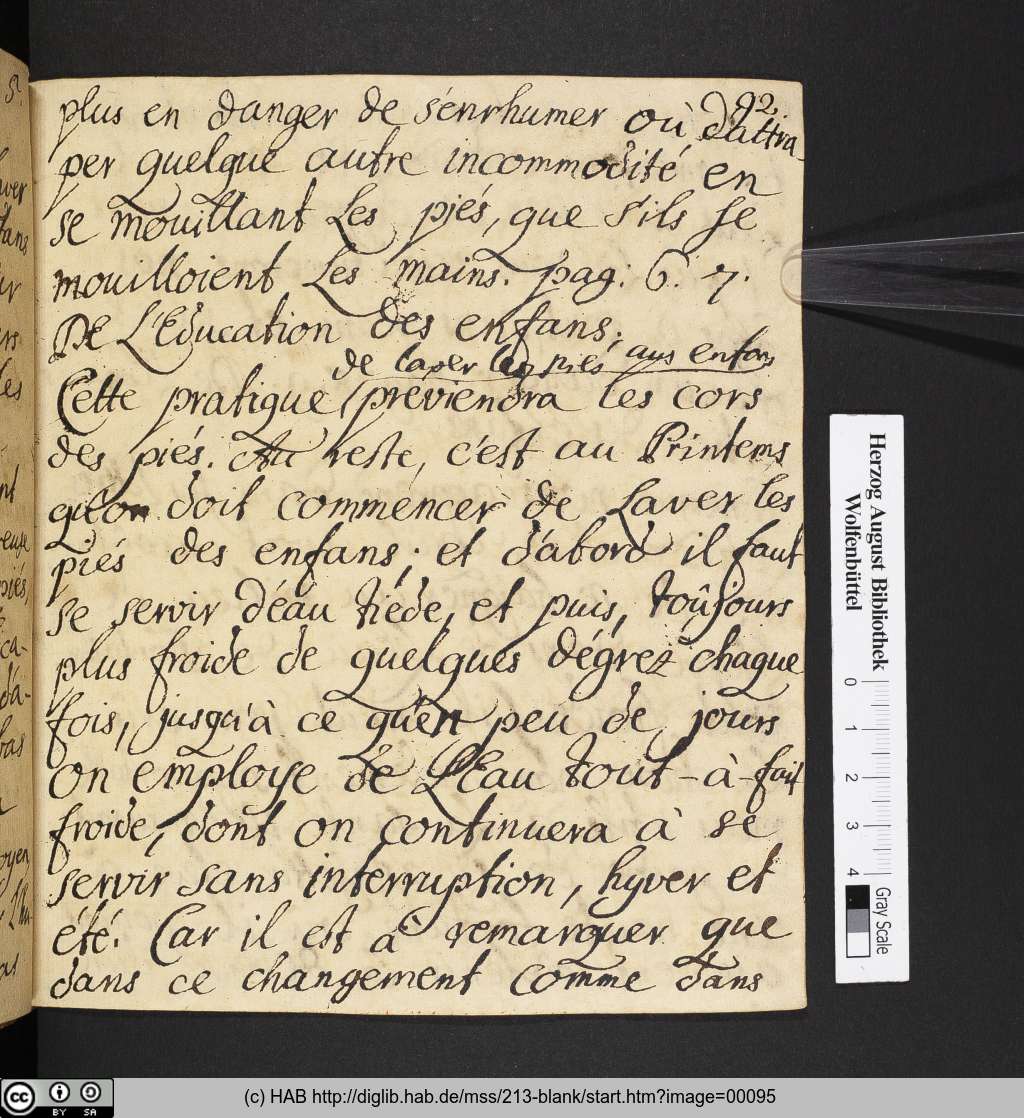 92.
plus en danger de s'enrhumer où d'attra
per quelque autre incommodité en
se mouillant Les piés, que s'ils se
mouilloient Les mains. pag: 6. 7.
De L'Education des enfans;
de laver les piés aus enfans
Cette pratique préviendra les cors
des piés. Au reste, c'est au Printems
qu'on doit commencer de Laver les
piés des enfans; et d'abord il faut
se servir d'éau tiéde, et puis, toûjours
plus froide de quelques dégrez chaque
fois, jusqu'à ce qu'en peu de jours
on employe de L'Eau tout-à-fait
froide, dont on continuera à se
servir sans interruption, hyver et
été. Car il est à remarquer que
dans ce changement comme dans
Herzog August Bibliothek
Wolfenbüttel
0 1 2 3 4
Gray Scale
(c) HAB http://diglib.hab.de/mss/213-blank/start.htm?image=00095
cc BY SA